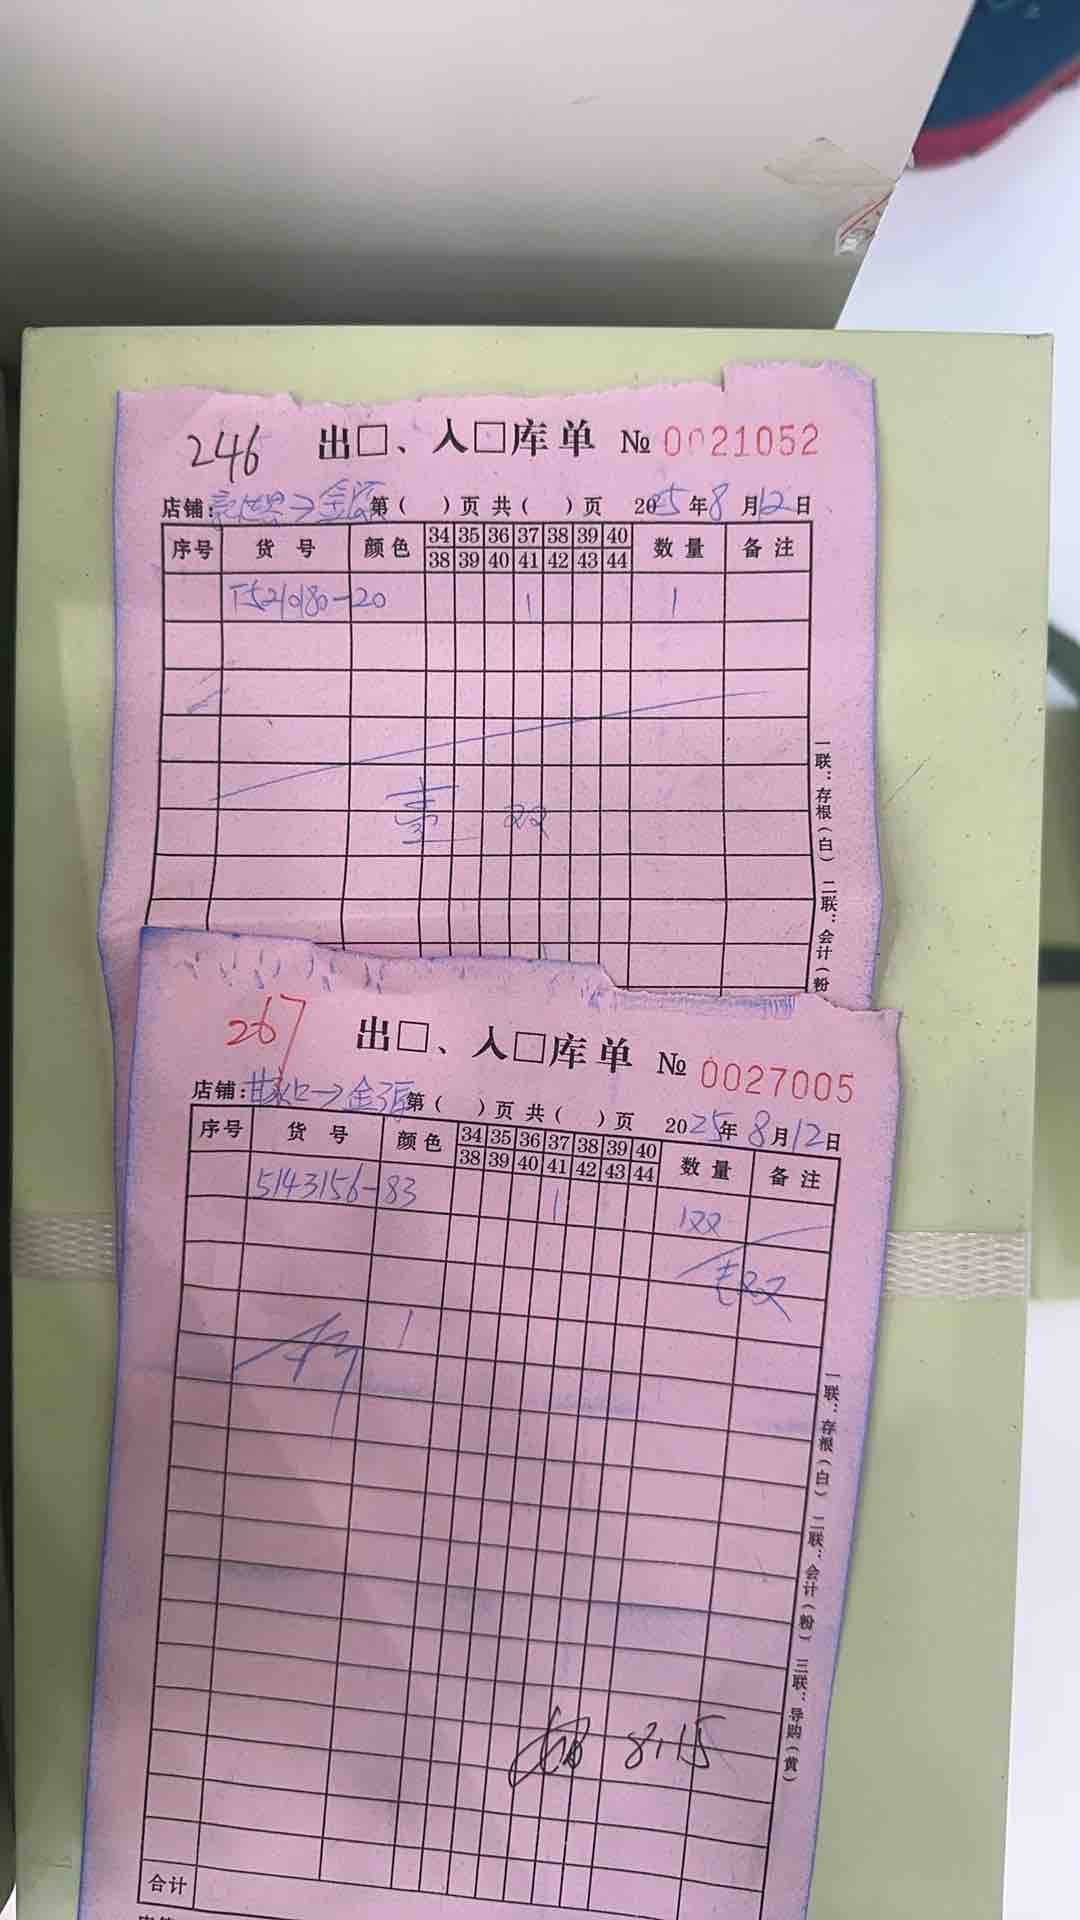 246 出□、入□库单 № 0021052
店铺: →金源 第( )页 共( )页 2025年8月12日
序号 货号 颜色 34 35 36 37 38 39 40 数量 备注
38 39 40 41 42 43 44
T5210180-20 1 1
壹 双
一联:存根(白) 二联:会计(粉
267 出□、入□库单 № 0027005
店铺:甘水口→金源 第( )页 共( )页 2025年8月12日
序号 货号 颜色 34 35 36 37 38 39 40 数量 备注
38 39 40 41 42 43 44
5143156-83 1 1双
8.15
合计
一联:存根(白) 二联:会计(粉) 三联:导购(黄)